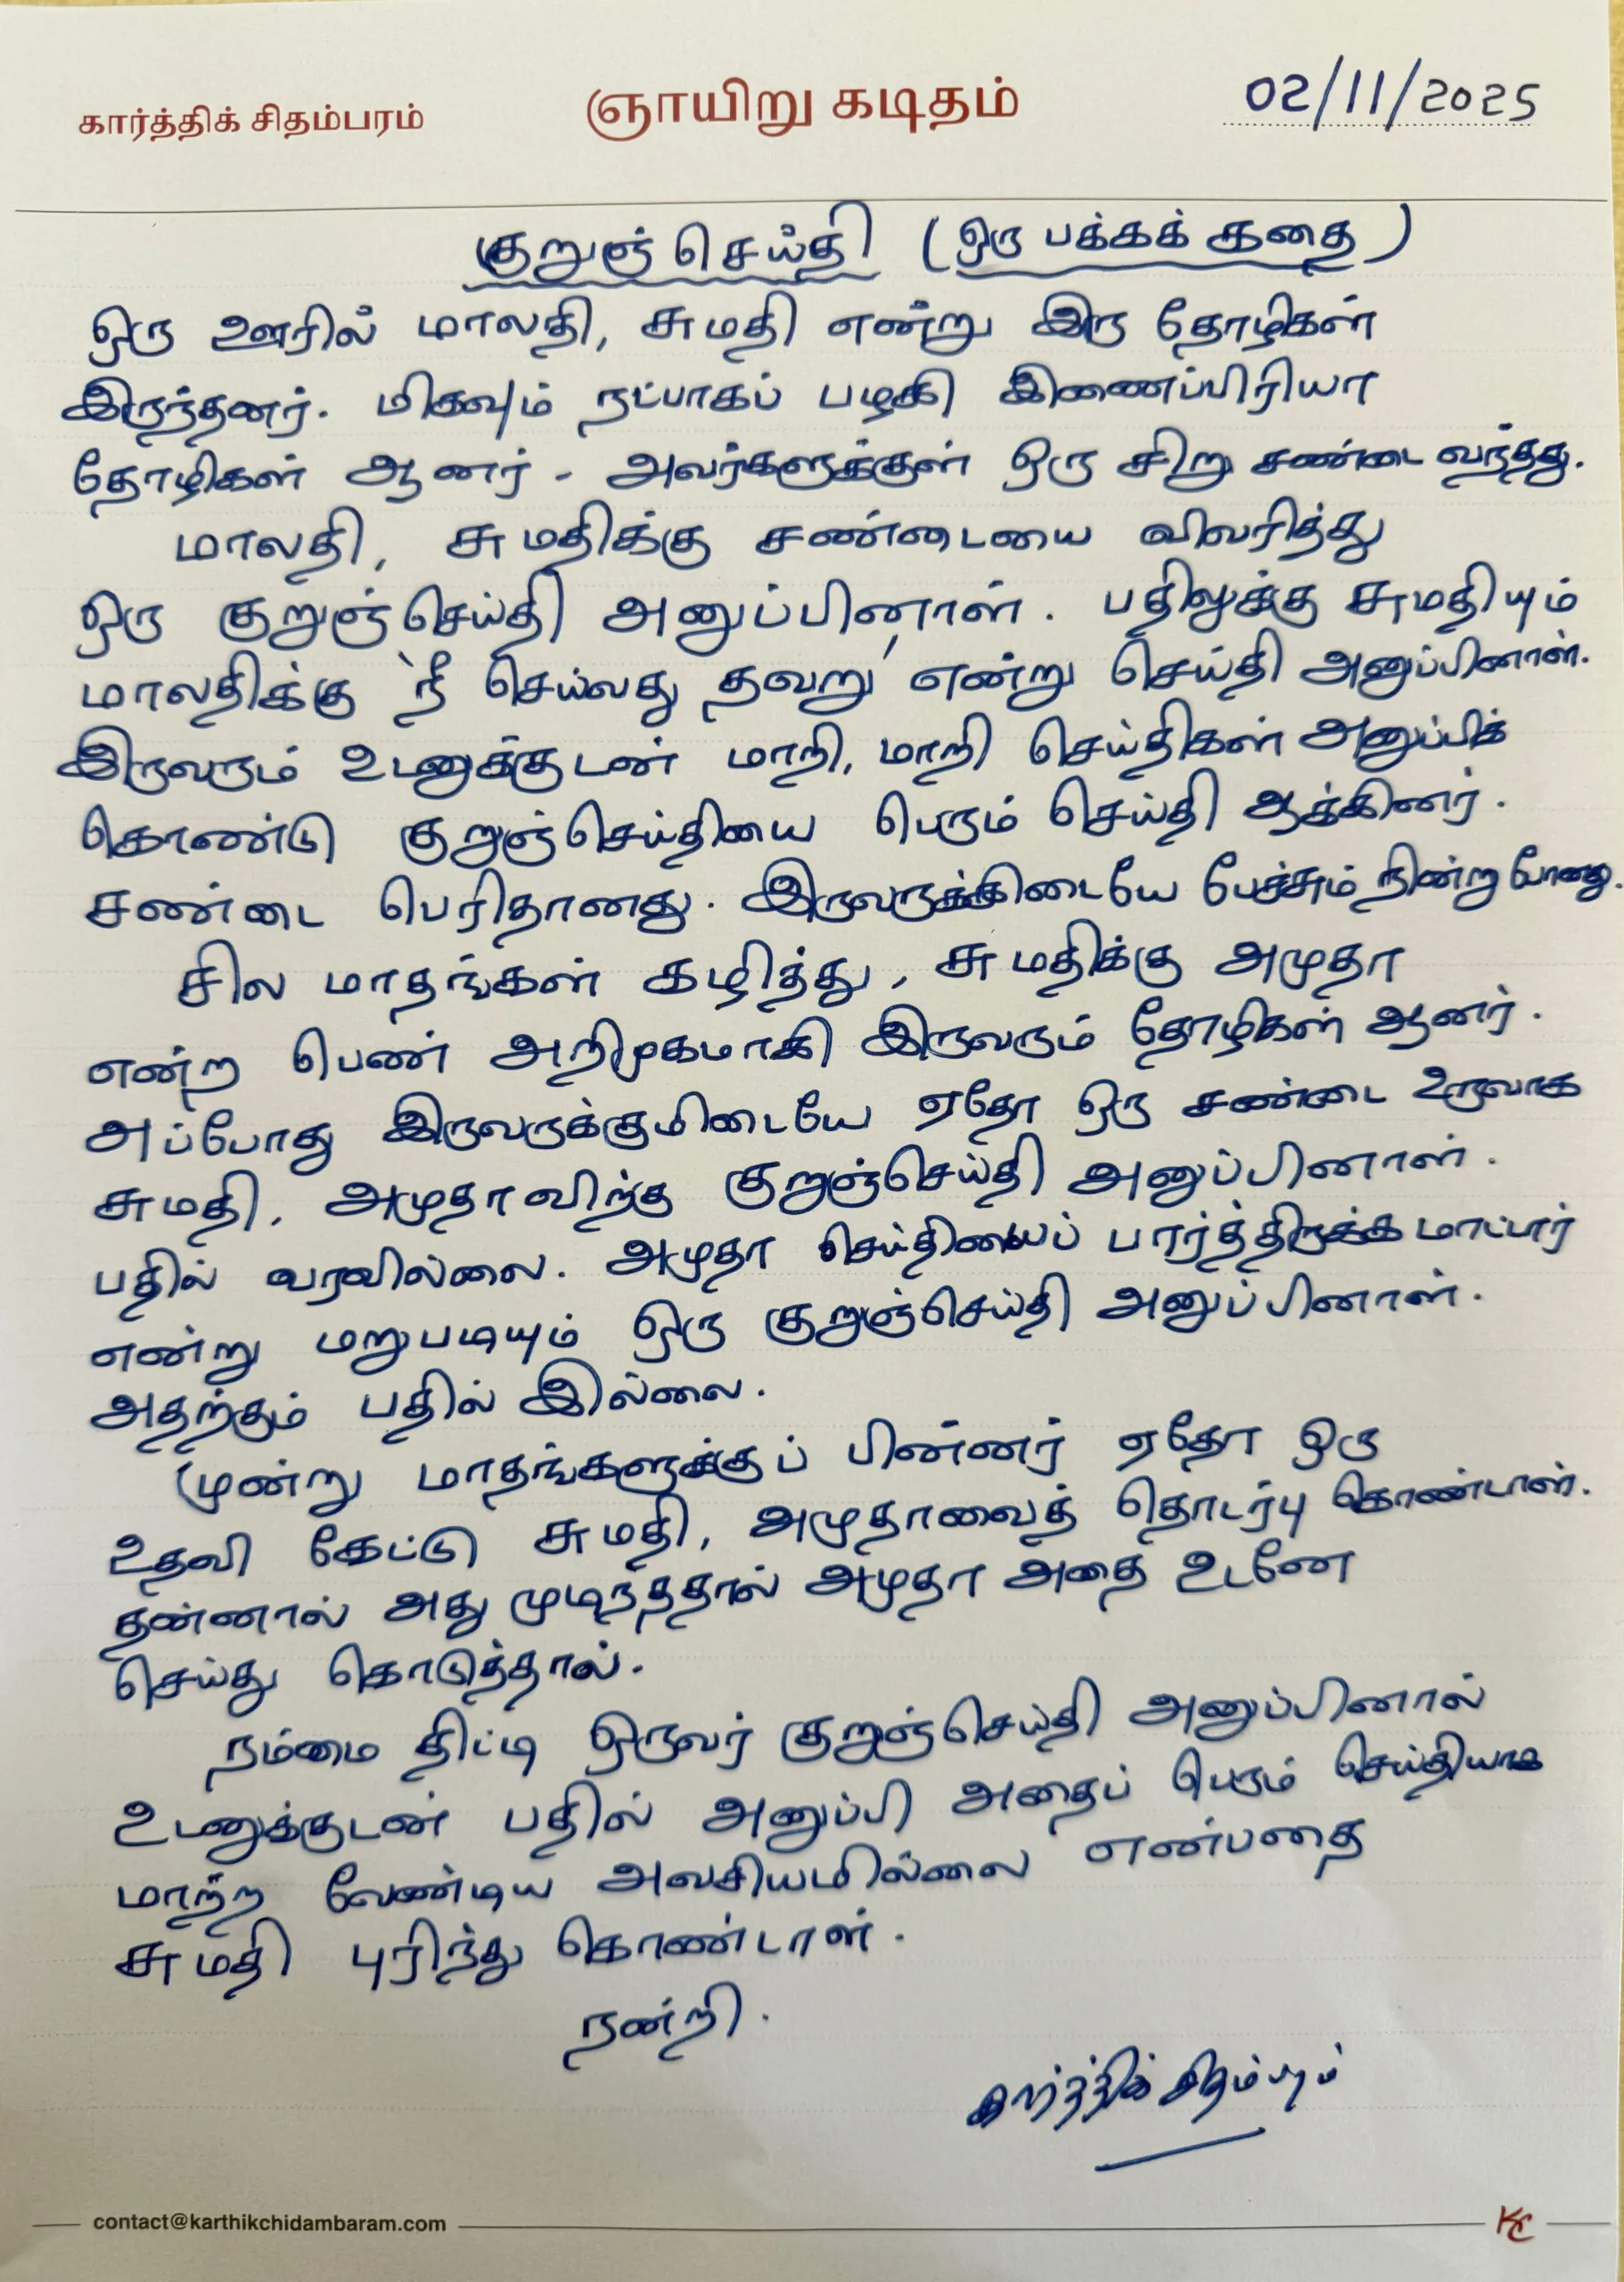 கார்த்திக் சிதம்பரம்
ஞாயிறு கடிதம்
02/11/2025
குறுஞ்செய்தி (ஒரு பக்கக் கதை)
ஒரு ஊரில் மாலதி, சுமதி என்று இரு தோழிகள்
இருந்தனர். மிகவும் நட்பாகப் பழகி இணைப்பிரியா
தோழிகள் ஆனர். அவர்களுக்குள் ஒரு சிறு சண்டை வந்தது.
மாலதி, சுமதிக்கு சண்டையை விவரித்து
ஒரு குறுஞ்செய்தி அனுப்பினாள். பதிலுக்கு சுமதியும்
மாலதிக்கு 'நீ செய்வது தவறு' என்று செய்தி அனுப்பினாள்.
இருவரும் உடனுக்குடன் மாறி, மாறி செய்திகள் அனுப்பிக்
கொண்டு குறுஞ்செய்தியை பெரும் செய்தி ஆக்கினர்.
சண்டை பெரிதானது. இருவருக்கிடையே பேச்சும் நின்று போனது.
சில மாதங்கள் கழித்து, சுமதிக்கு அமுதா
என்ற பெண் அறிமுகமாகி இருவரும் தோழிகள் ஆனர்.
அப்போது இருவருக்குமிடையே ஏதோ ஒரு சண்டை உருவாக
சுமதி, அமுதாவிற்கு குறுஞ்செய்தி அனுப்பினாள்.
பதில் வரவில்லை. அமுதா செய்தியைப் பார்த்திருக்க மாட்டார்
என்று மறுபடியும் ஒரு குறுஞ்செய்தி அனுப்பினாள்.
அதற்கும் பதில் இல்லை.
மூன்று மாதங்களுக்குப் பின்னர் ஏதோ ஒரு
உதவி கேட்டு சுமதி, அமுதாவைத் தொடர்பு கொண்டாள்.
தன்னால் அது முடிந்ததால் அமுதா அதை உடனே
செய்து கொடுத்தால்.
நம்மை திட்டி ஒருவர் குறுஞ்செய்தி அனுப்பினால்
உடனுக்குடன் பதில் அனுப்பி அதைப் பெரும் செய்தியாக
மாற்ற வேண்டிய அவசியமில்லை என்பதை
சுமதி புரிந்து கொண்டாள்.
நன்றி.
கார்த்திக் சிதம்பரம்
contact@karthikchidambaram.com
KC